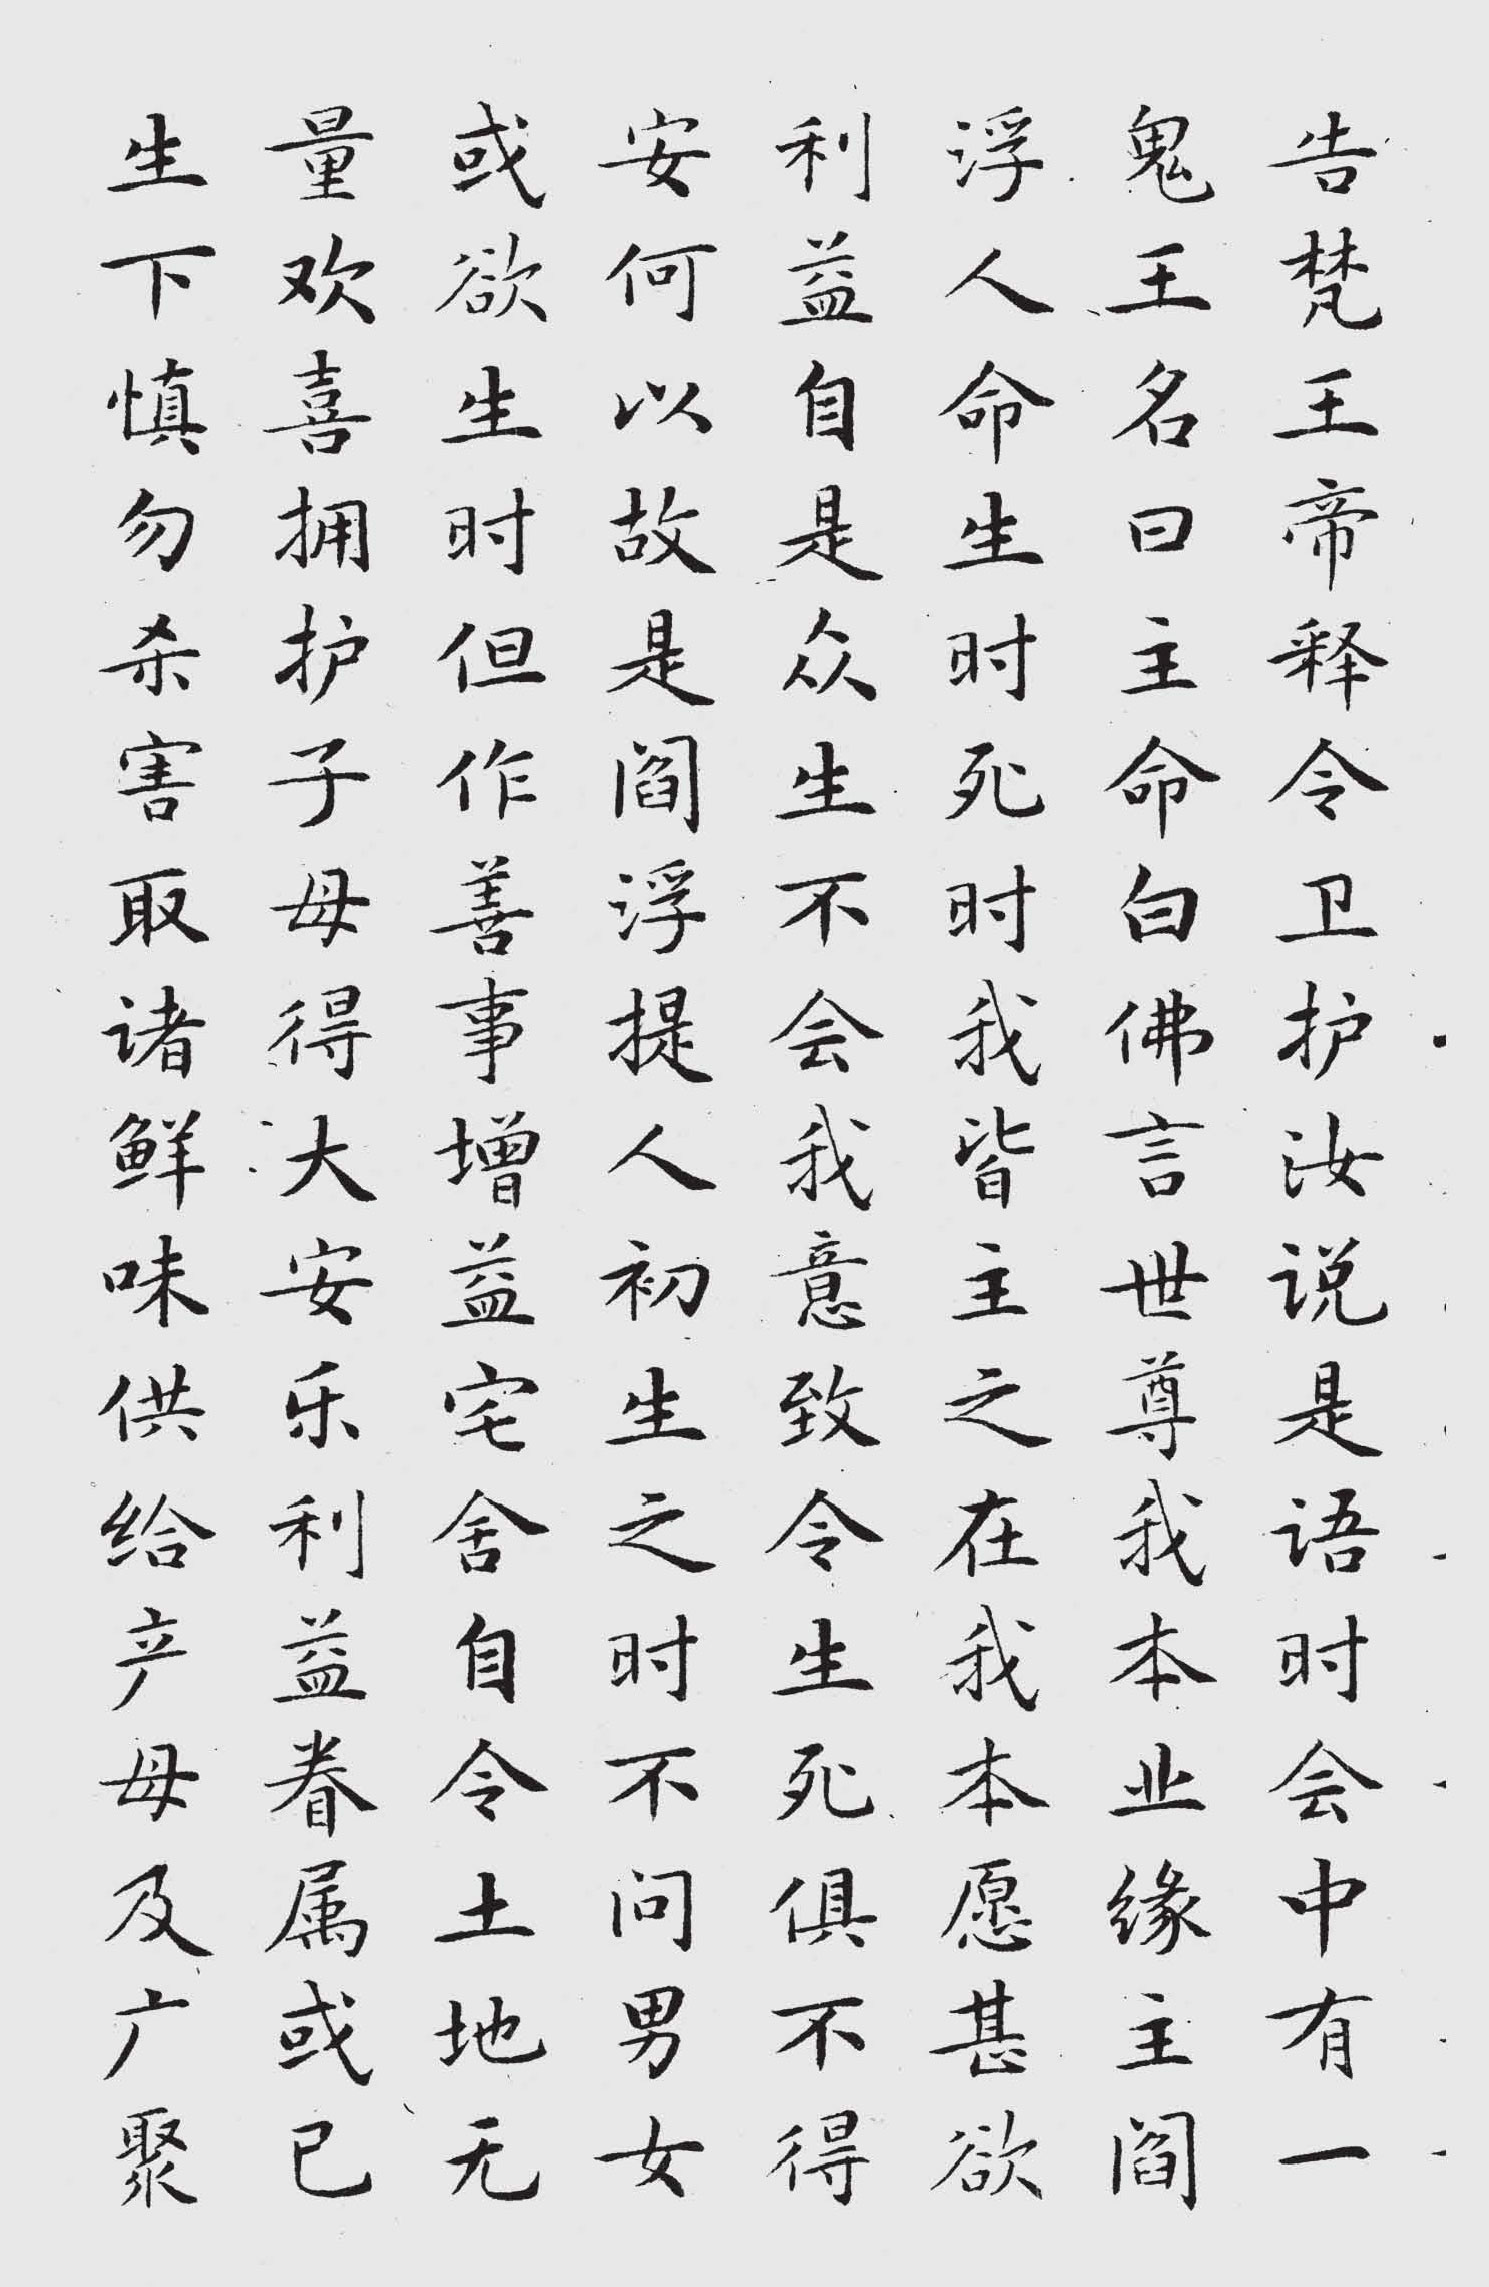 告梵王帝释令卫护汝说是语时会中有一
鬼王名曰主命白佛言世尊我本业缘主阎
浮人命生时死时我皆主之在我本愿甚欲
利益自是众生不会我意致令生死俱不得
安何以故是阎浮提人初生之时不问男女
或欲生时但作善事增益宅舍自令土地无
量欢喜拥护子母得大安乐利益眷属或已
生下慎勿杀害取诸鲜味供给产母及广聚